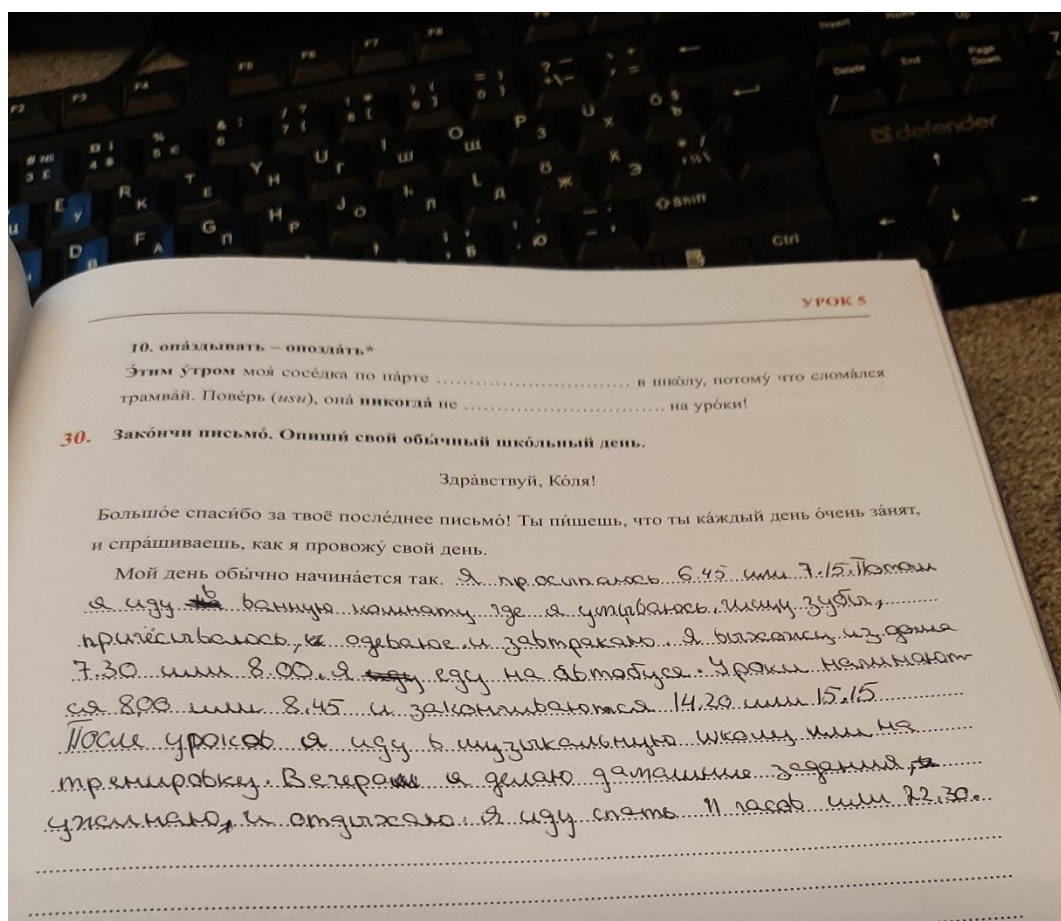 F2 F3 F4 F5 F6 F7 F8
Insert Home Up
Delete End Page Down
defender
Shift
Ctrl
УРОК 5
10. опа́здывать – опозда́ть*
Э́тим у́тром моя́ сосе́дка по па́рте ................................ в шко́лу, потому́ что слома́лся
трамва́й. Пове́рь (usu), она́ никогда́ не ................................ на уро́ки!
30. Зако́нчи письмо́. Опиши́ свой обы́чный шко́льный день.
Здра́вствуй, Ко́ля!
Большо́е спаси́бо за твоё после́днее письмо́! Ты пи́шешь, что ты ка́ждый день о́чень за́нят,
и спра́шиваешь, как я провожу́ свой день.
Мой день обы́чно начина́ется так. Я просыпаюсь 6.45 или 7.15. Потом
я иду в ванную комнату где я умываюсь, чищу зубы,
причёсываюсь, одеваюс и завтракаю. Я выхожу из дома
7.30 или 8.00. Я еду на автобусе. Уроки начинают-
ся 8.00 или 8.45 и заканчиваются 14.20 или 15.15
После уроков я иду в музыкальную школу или на
тренировку. Вечером я делаю дамашние задания,
ужинаю, и отдыхаю. Я иду спать 11 часов или 22.30.